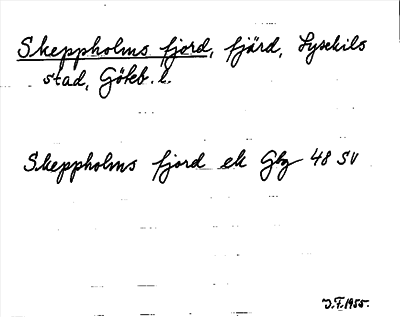 Skeppholms fjord, fjärd, Lysekils
stad, Gökb. l.
Skeppholms fjord ek Gbg 48 SV
J.F. 1955.